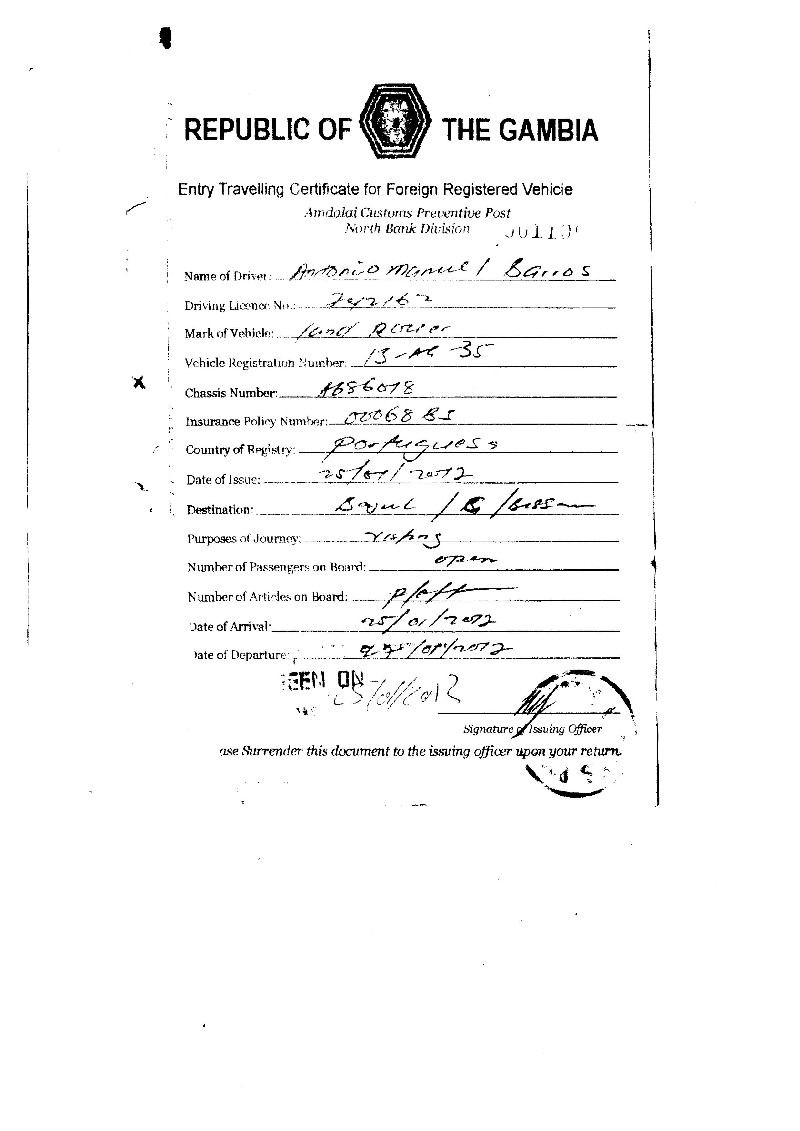 REPUBLIC OF THE GAMBIA
Entry Travelling Certificate for Foreign Registered Vehicle
Amdalai Customs Preventive Post
North Bank Division
Name of Driver: Antonio Manuel Barros
Driving Licence No.:
Mark of Vehicle: Land Rover
Vehicle Registration Number: 13-AG-35
Chassis Number: A686078
Insurance Policy Number: 00068 BS
Country of Registry: Portuguess
Date of Issue: 25/01/2012
Destination: Banjul / G/Bissau
Purposes of Journey:
Number of Passengers on Board: open
Number of Articles on Board: p/aff
Date of Arrival: 25/01/2012
Date of Departure: /2012
SEEN ON 25/01/2012
Signature of Issuing Officer
ase Surrender this document to the issuing officer upon your return.